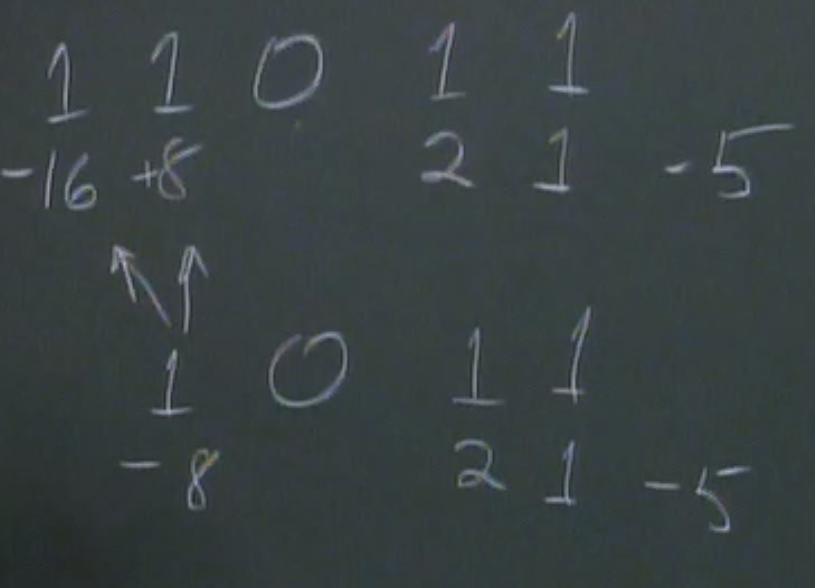 1 1 0 1 1
-16 +8 2 1 -5
1 0 1 1
-8 2 1 -5